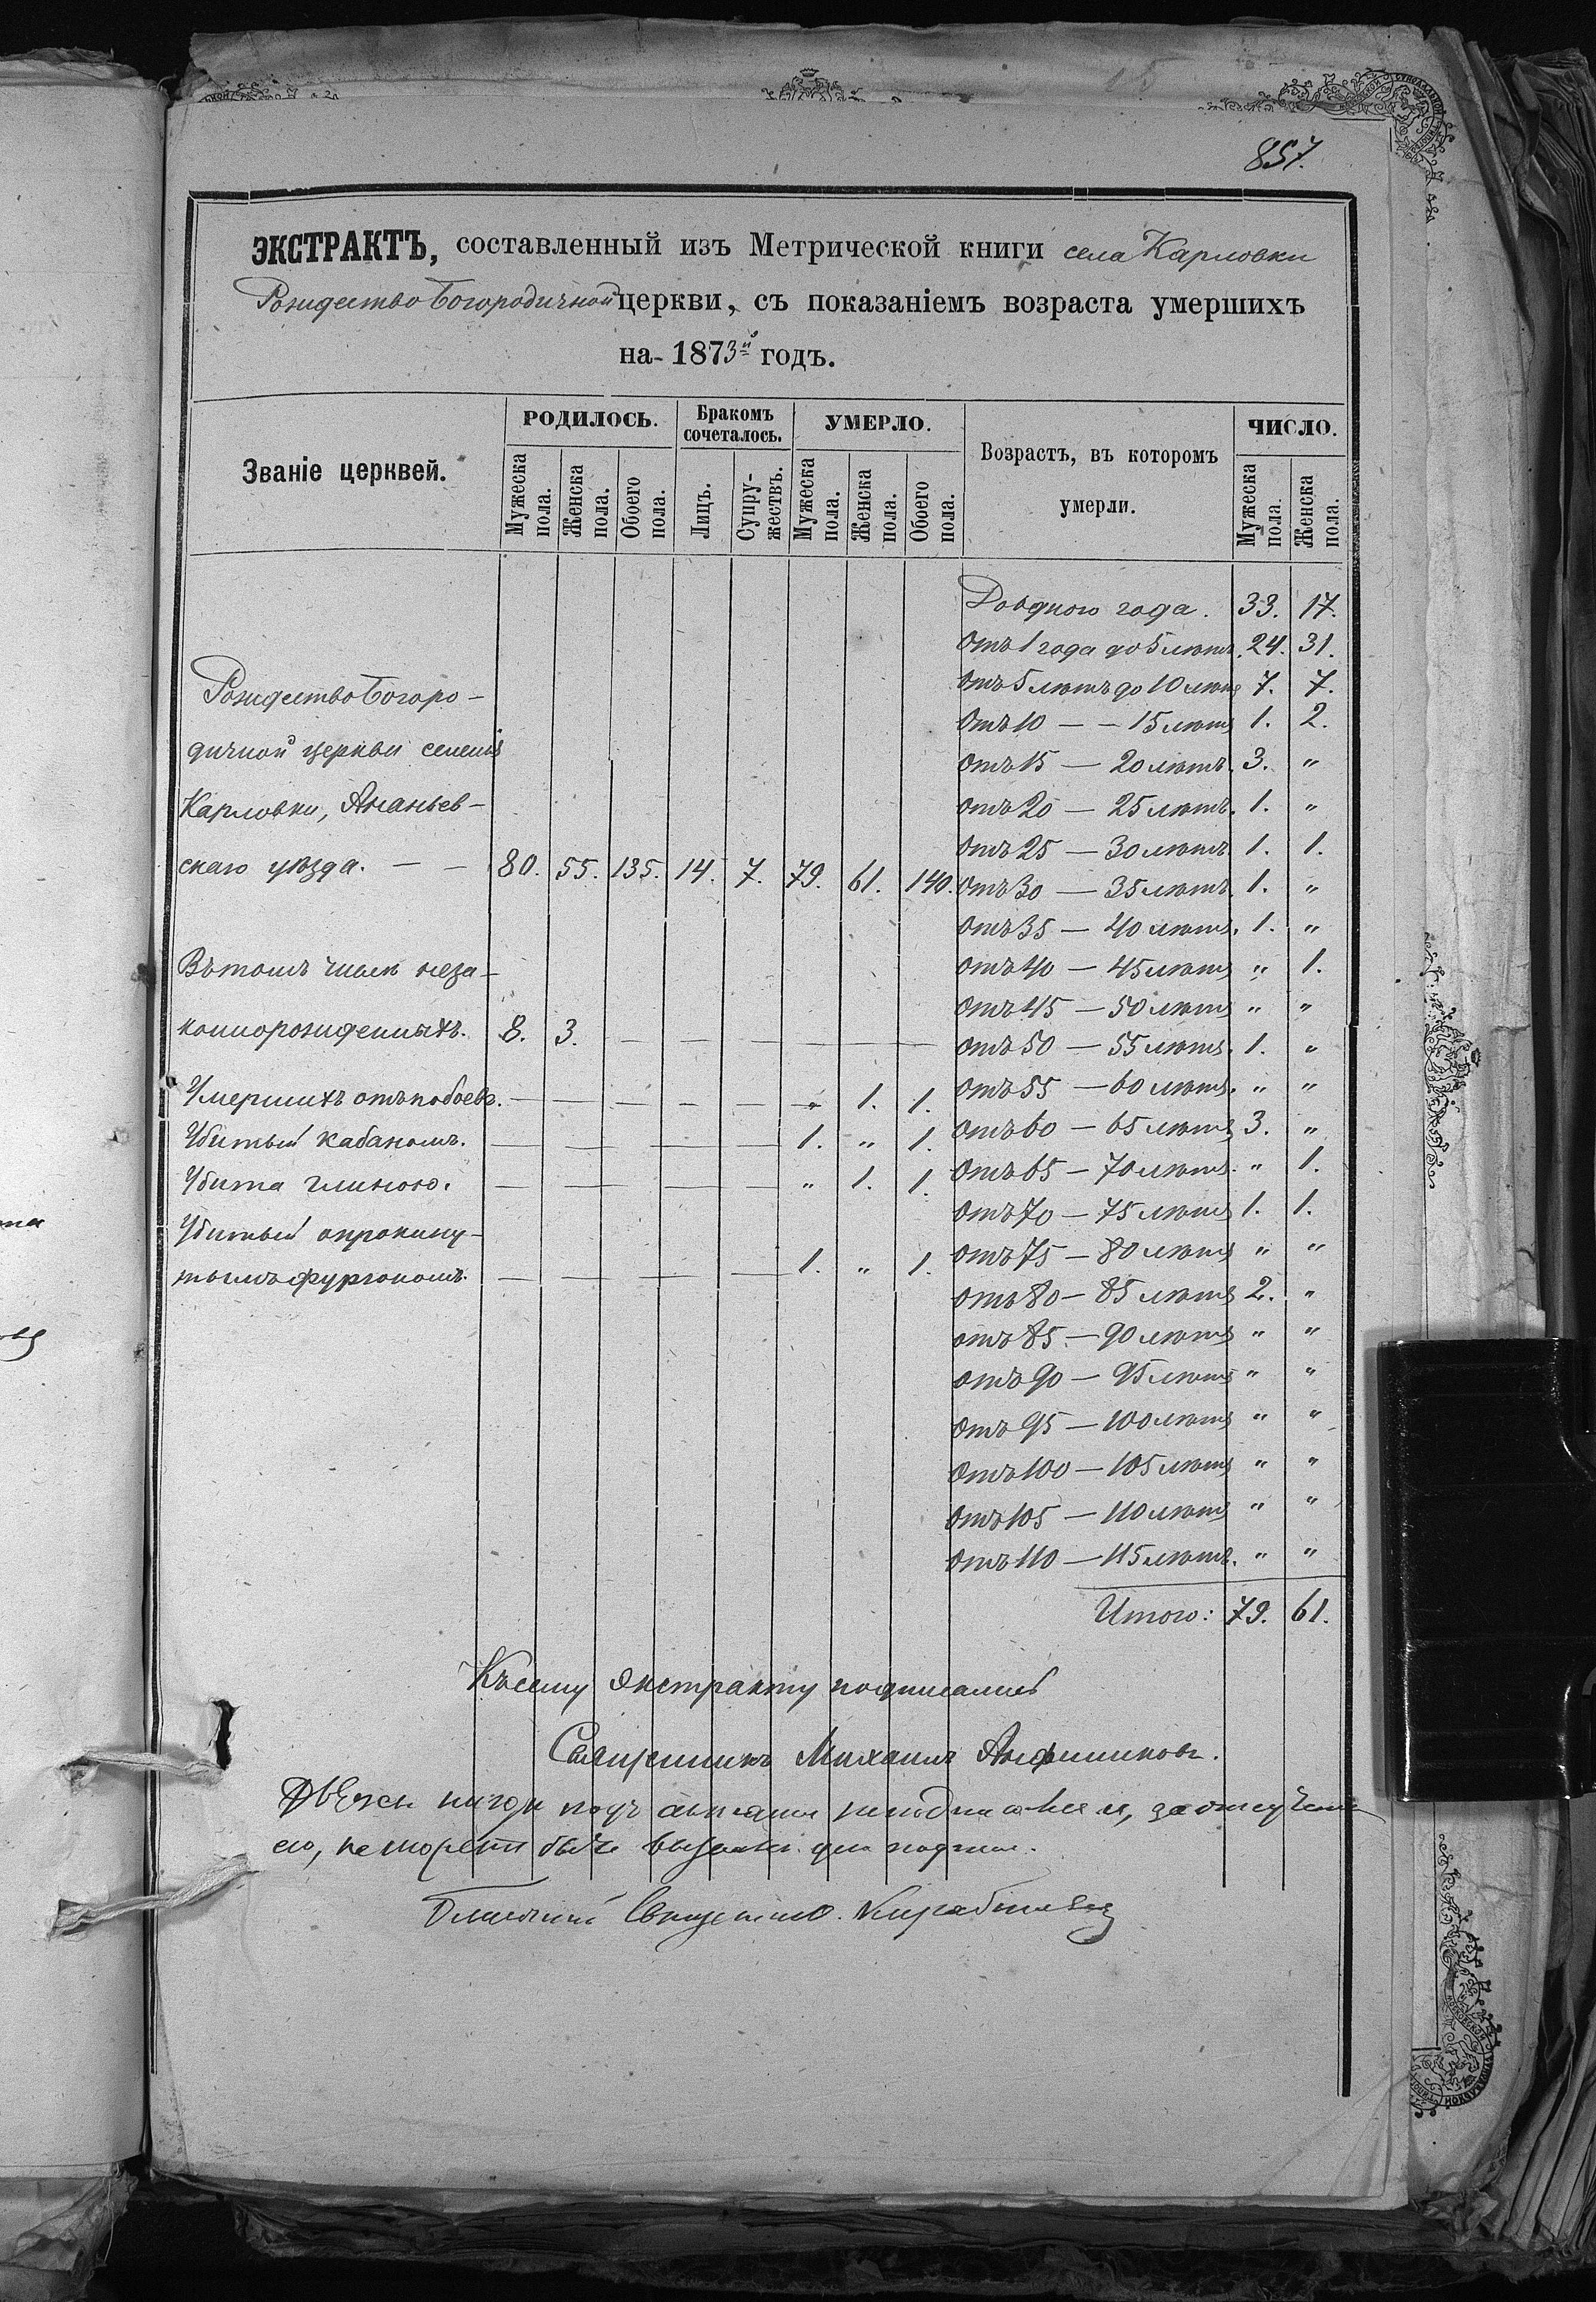 857.
ЭКСТРАКТЪ, составленный изъ Метрической книги села Карловки
Рождество Богородичной церкви, съ показаніемъ возраста умершихъ
на 1873й годъ.
Званіе церквей.
РОДИЛОСЬ.
Мужеска пола.
Женска пола.
Обоего пола.
Бракомъ сочеталось.
Лицъ.
Супружествъ.
УМЕРЛО.
Мужеска пола.
Женска пола.
Обоего пола.
Возрастъ, въ которомъ
умерли.
ЧИСЛО.
Мужеска пола.
Женска пола.
Рождество Богоро-
дичной церкви селенія
Карловки, Ананьев-
скаго уѣзда. — — 80. 55. 135. 14. 7. 79. 61. 140.
Въ томъ числѣ неза-
коннорожденныхъ. 8. 3. — — — — — —
Умершихъ отъ побоевъ. — — — — — " 1. 1.
Убитый кабаномъ. — — — — — 1. " 1.
Убита глиною. — — — — — " 1. 1.
Убитый опрокину-
тымъ фургономъ. — — — — — 1. " 1.
До одного года. 33. 17.
Отъ 1 года до 5 лѣтъ. 24. 31.
Отъ 5 лѣтъ до 10 лѣтъ 7. 7.
Отъ 10 — — 15 лѣтъ 1. 2.
Отъ 15 — 20 лѣтъ. 3. "
Отъ 20 — 25 лѣтъ. 1. "
Отъ 25 — 30 лѣтъ. 1. 1.
Отъ 30 — 35 лѣтъ. 1. "
Отъ 35 — 40 лѣтъ. 1. "
Отъ 40 — 45 лѣтъ " 1.
Отъ 45 — 50 лѣтъ " "
Отъ 50 — 55 лѣтъ. 1. "
Отъ 55 — 60 лѣтъ. " "
Отъ 60 — 65 лѣтъ 3. "
Отъ 65 — 70 лѣтъ. " 1.
Отъ 70 — 75 лѣтъ 1. 1.
Отъ 75 — 80 лѣтъ " "
Отъ 80 — 85 лѣтъ 2. "
отъ 85 — 90 лѣтъ " "
отъ 90 — 95 лѣтъ " "
Отъ 95 — 100 лѣтъ " "
Отъ 100 — 105 лѣтъ " "
Отъ 105 — 110 лѣтъ " "
Отъ 110 — 115 лѣтъ. " "
Итого: 79. 61.
Къ сему экстракту подписались
Священникъ Михаилъ
его, не можетъ быть
Священникъ